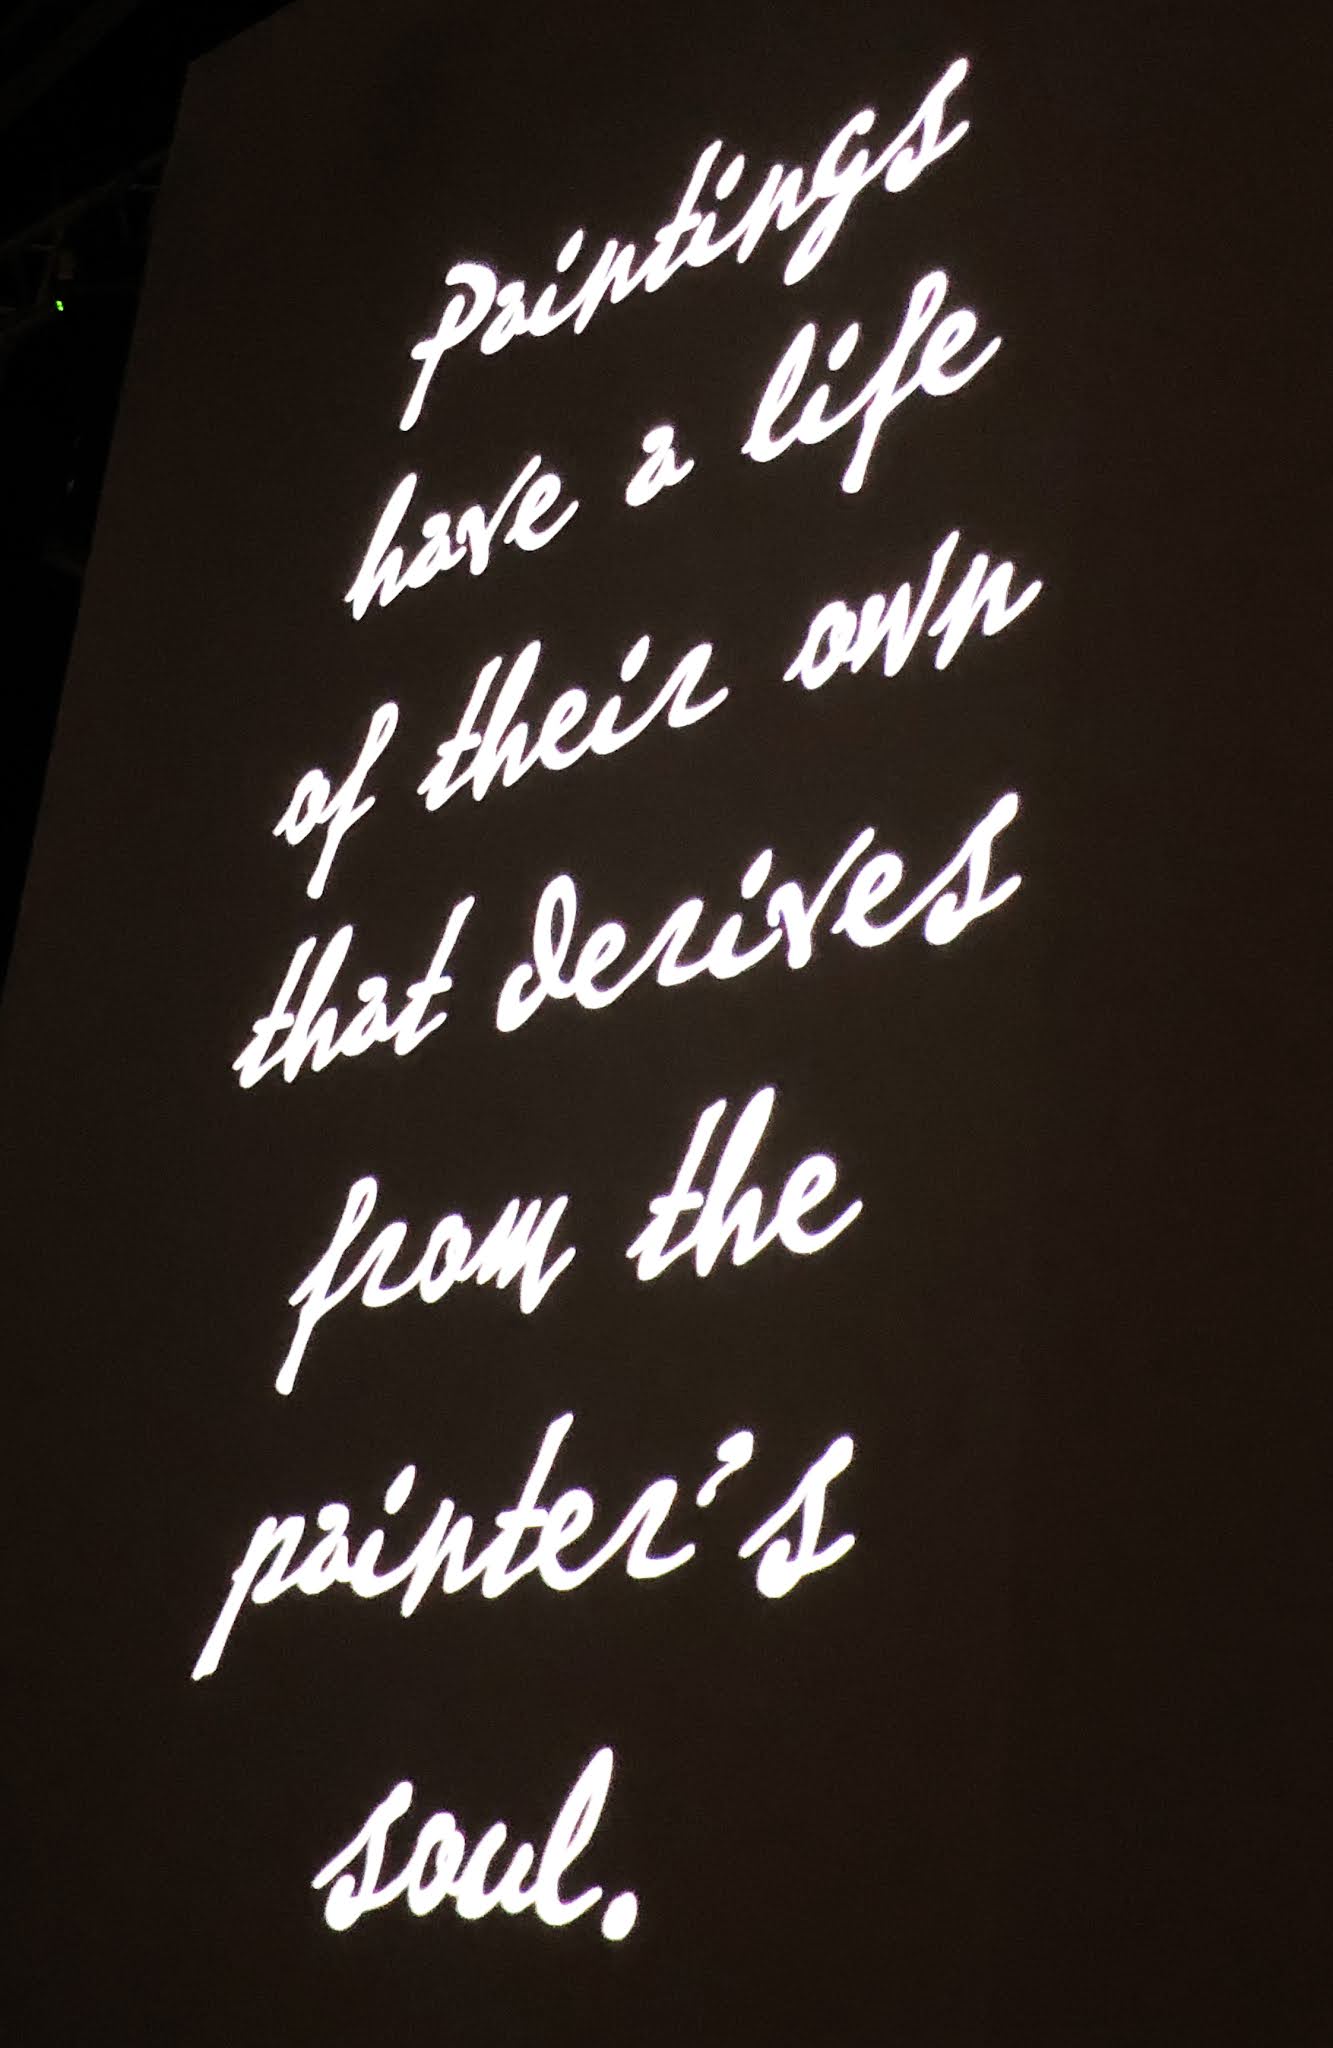 Paintings
have a life
of their own
that derives
from the
painter's
soul.